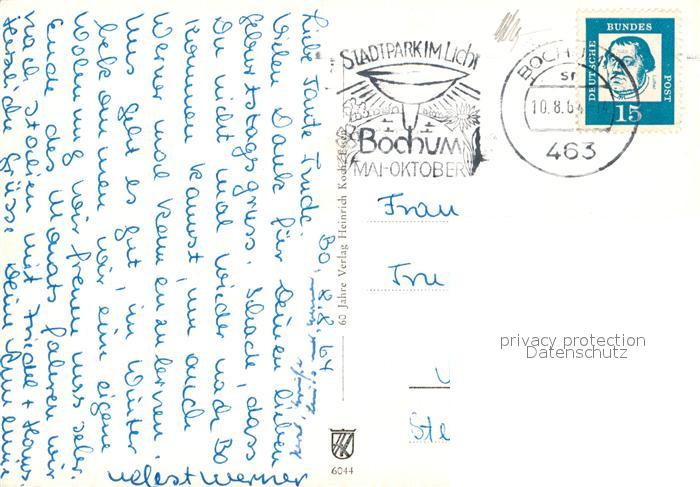 Bo, 8.8.64
Liebe Tante Trude.
Vielen Dank für Deinen lieben
Geburtstagsgruss. Schade, dass
Du nicht mal wieder nach Bo
kommen kannst, um auch
Werner mal kennenzulernen.
Uns geht es gut, im Winter
bekommen wir eine eigene
Wohnung, wir freuen uns sehr.
Ende des Monats fahren wir
nach Italien mit Friedel + Hans.
Herzliche Grüsse Deine Annemie
nebst Werner
60 Jahre Verlag Heinrich Koch
6044
STADTPARK IM Licht
Bochum
MAI-OKTOBER
BOCHUM
10.8.64
463
DEUTSCHE BUNDES POST
15
Frau
Tru
Ste
privacy protection
Datenschutz